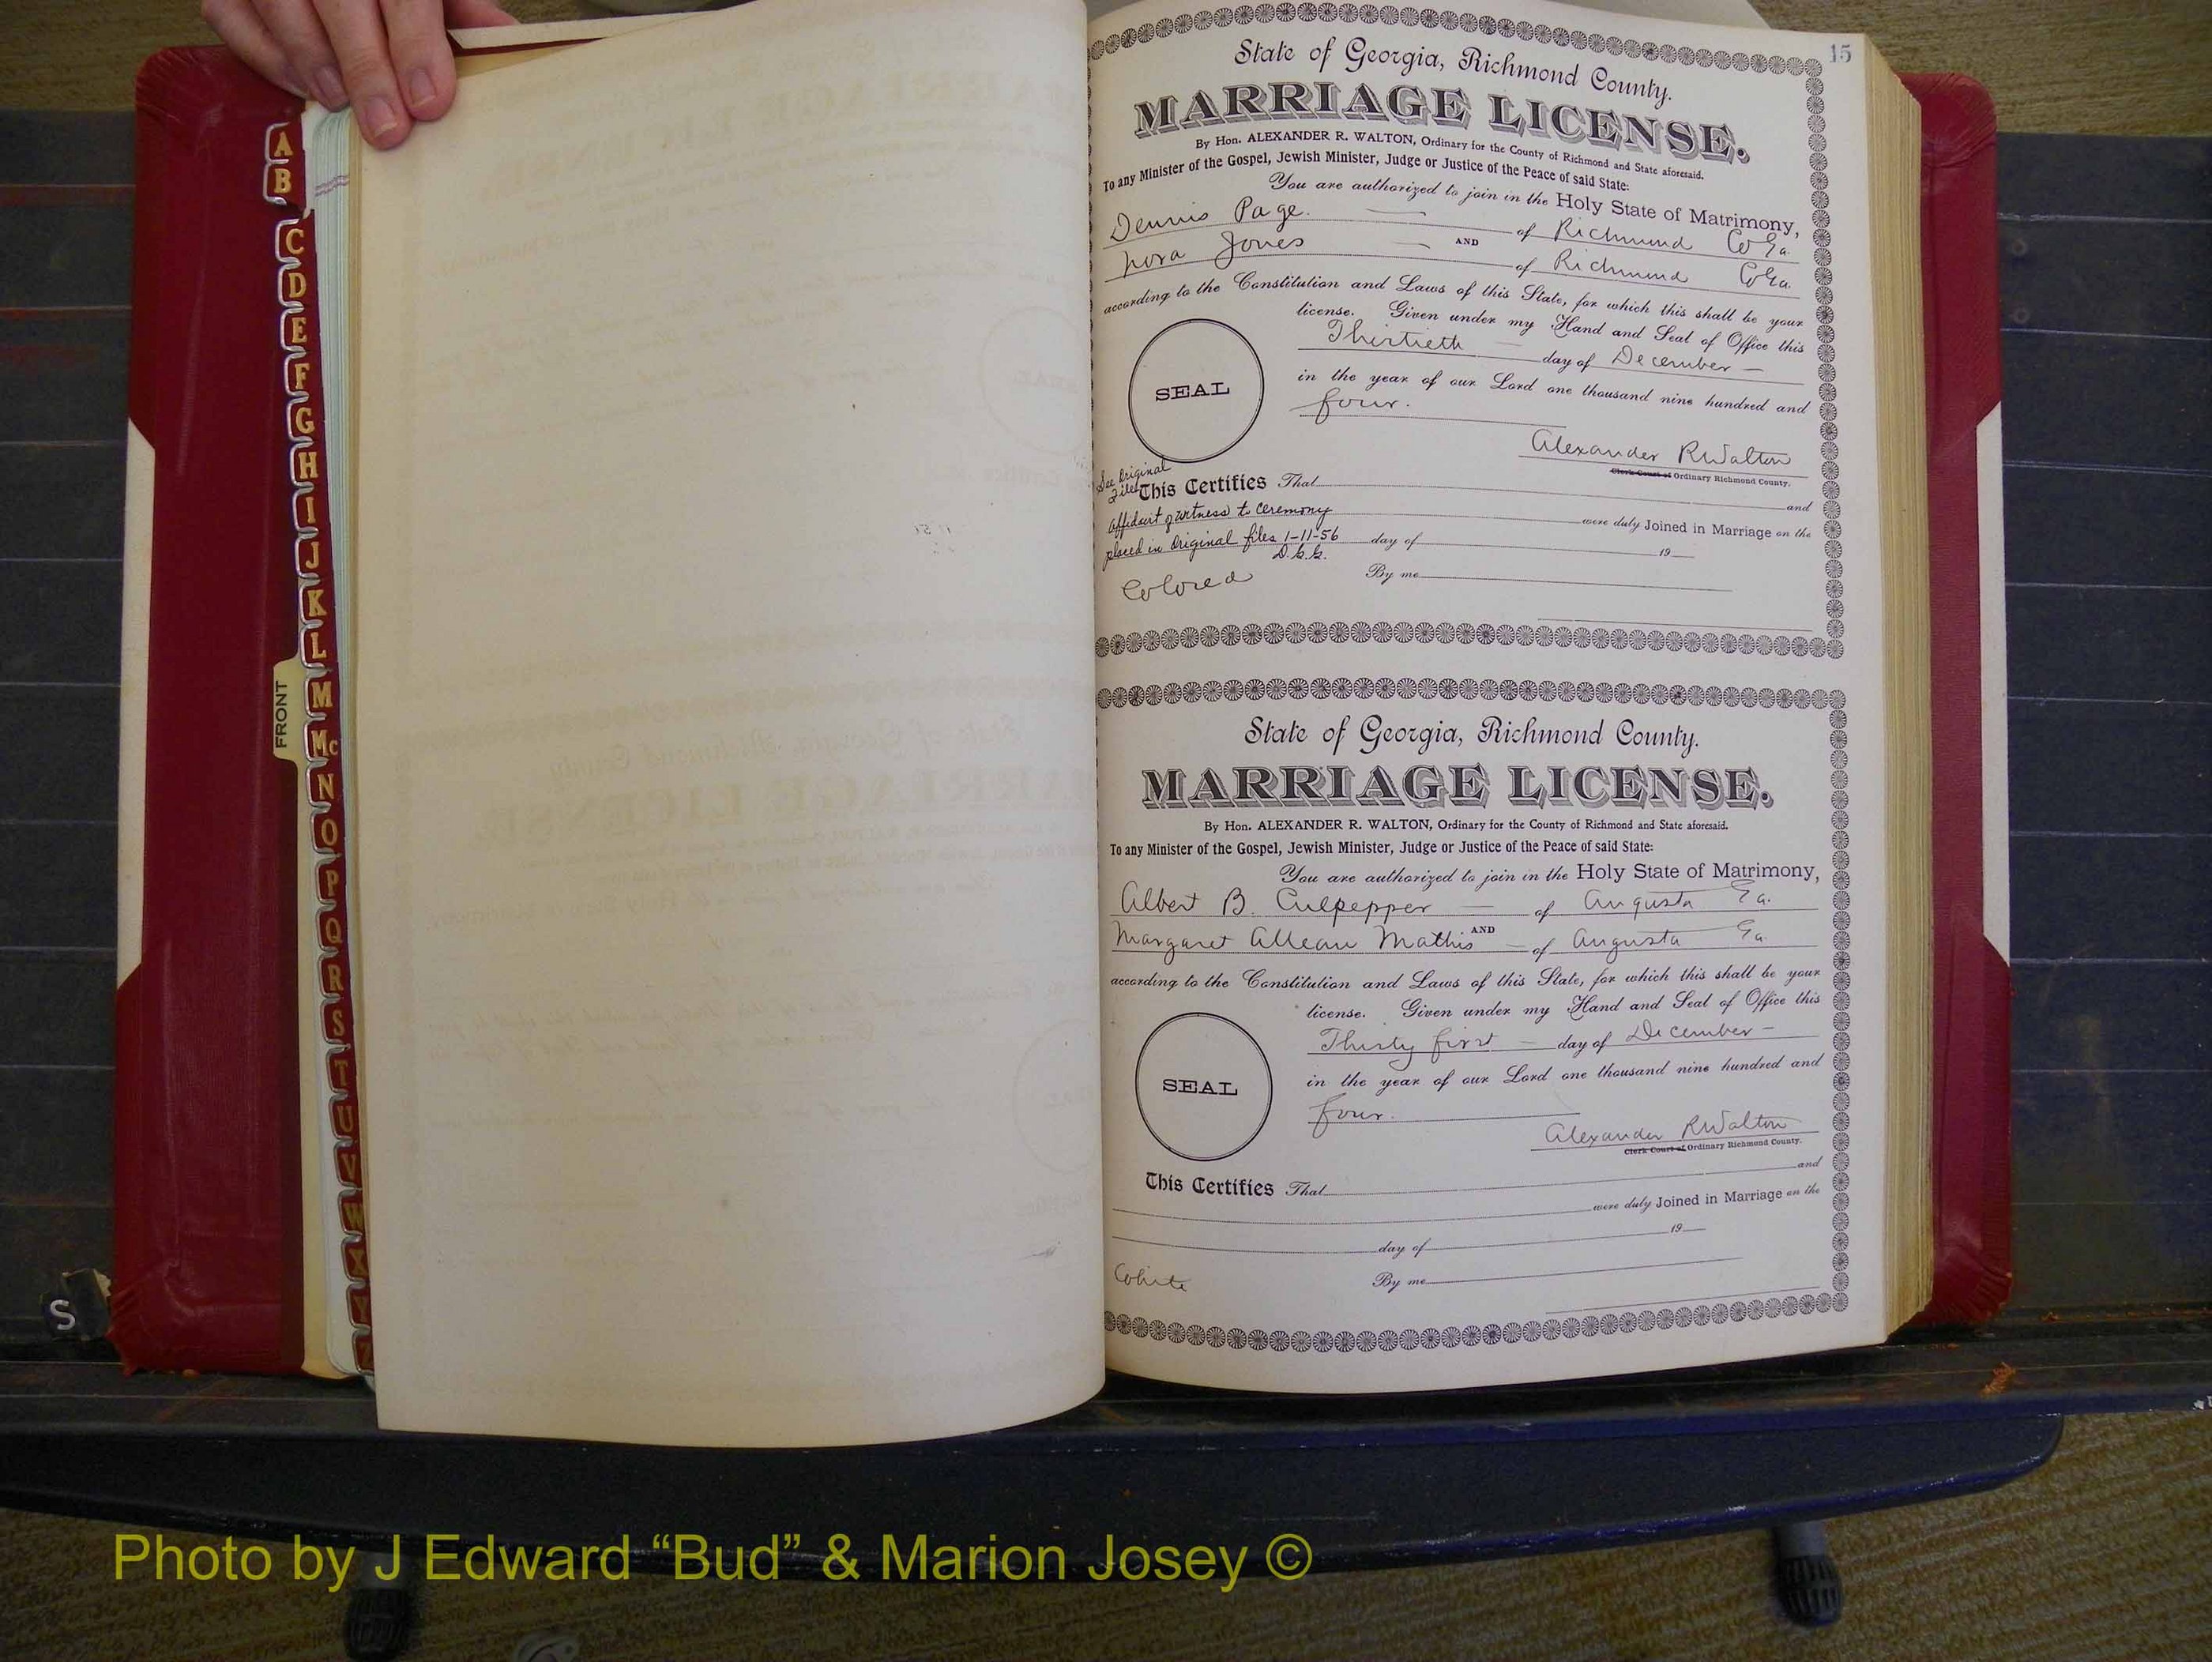 A
B
C
D
E
F
G
H
I
J
K
L
M
Mc
N
O
P
Q
R
S
T
U
V
W
X
Y
Z
FRONT
S
15
State of Georgia, Richmond County.
MARRIAGE LICENSE.
By Hon. ALEXANDER R. WALTON, Ordinary for the County of Richmond and State aforesaid.
To any Minister of the Gospel, Jewish Minister, Judge or Justice of the Peace of said State:
You are authorized to join in the Holy State of Matrimony,
Dennis Page of Richmond Co Ga.
AND
Nora Jones of Richmond Co Ga.
according to the Constitution and Laws of this State, for which this shall be your
license. Given under my Hand and Seal of Office this
Thirtieth day of December
SEAL
in the year of our Lord one thousand nine hundred and
four.
Alexander R Walton
Clerk Court of Ordinary Richmond County.
See Original
Files
This Certifies That
and
affidavit of witness to ceremony
were duly Joined in Marriage on the
placed in Original files 1-11-56 day of 19
By me
Colored
State of Georgia, Richmond County.
MARRIAGE LICENSE.
By Hon. ALEXANDER R. WALTON, Ordinary for the County of Richmond and State aforesaid.
To any Minister of the Gospel, Jewish Minister, Judge or Justice of the Peace of said State:
You are authorized to join in the Holy State of Matrimony,
Albert B. Culpepper of Augusta Ga.
AND
Margaret Allean Mathis of Augusta Ga.
according to the Constitution and Laws of this State, for which this shall be your
license. Given under my Hand and Seal of Office this
Thirty first day of December
SEAL
in the year of our Lord one thousand nine hundred and
four.
Alexander R Walton
Clerk Court of Ordinary Richmond County.
This Certifies That
and
were duly Joined in Marriage on the
day of 19
White By me
Photo by J Edward “Bud” & Marion Josey ©